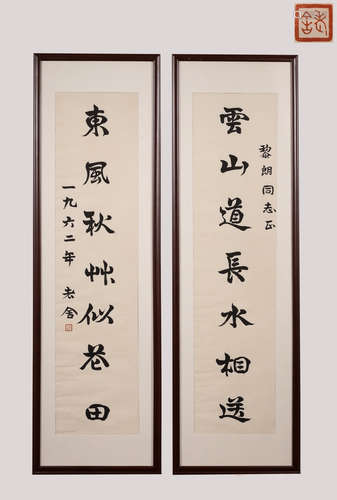 雲山道長水相送
黎朗同志正
東風秋艸似花田
一九六二年 老舍
老舍